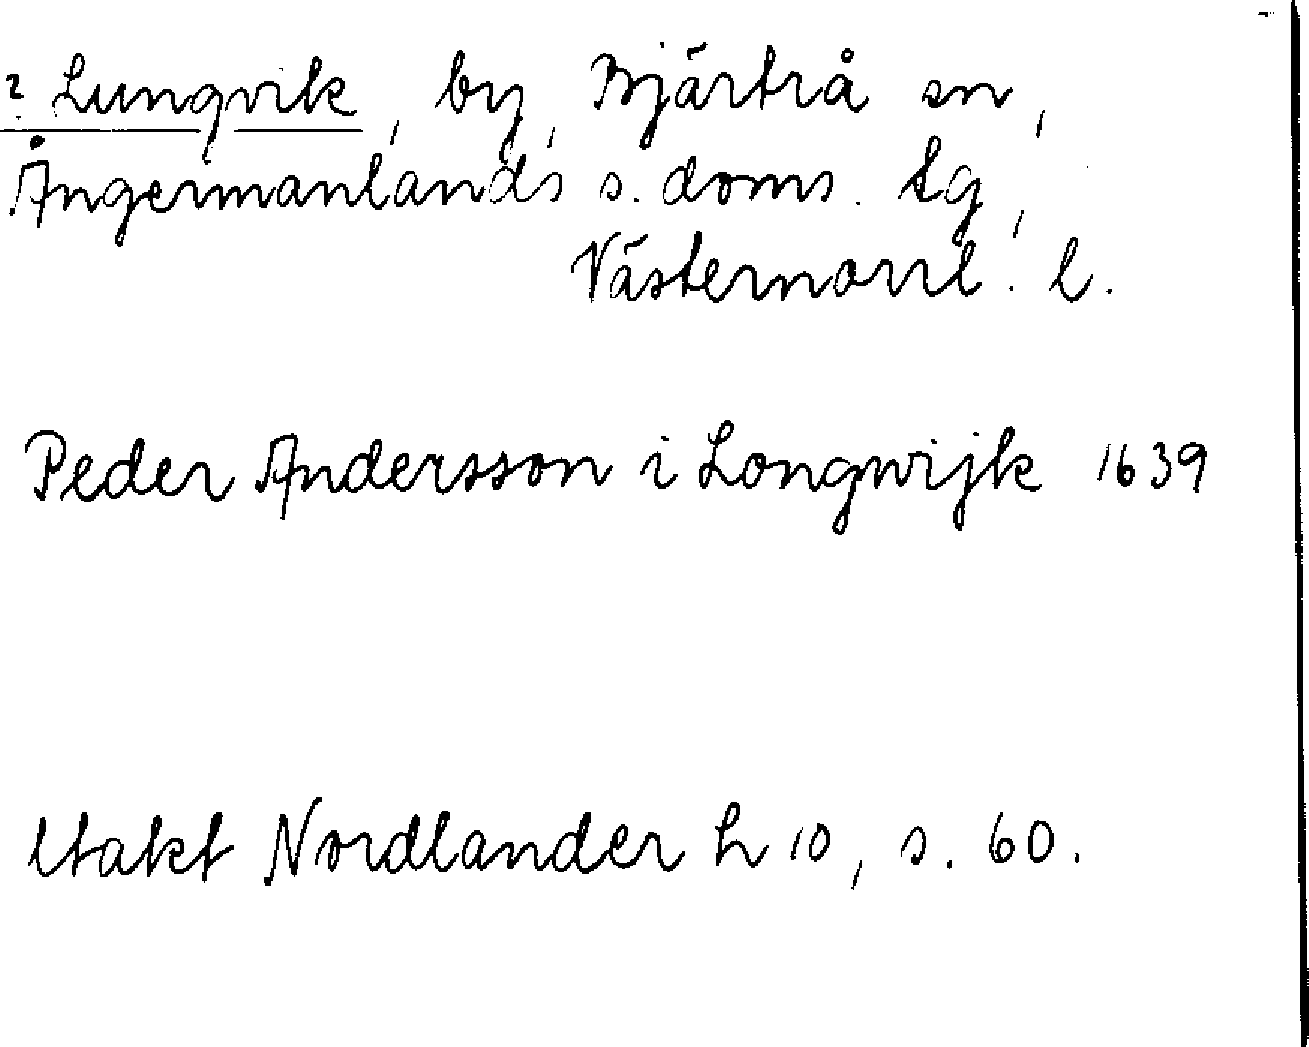 ? Lungvik, by, Bjärtrå sn,
Ångermanlands s. doms. tg,
Västernorrl. l.
Peder Andersson i Longwijk 1639
Utakt Nordlander h 10, s. 60.